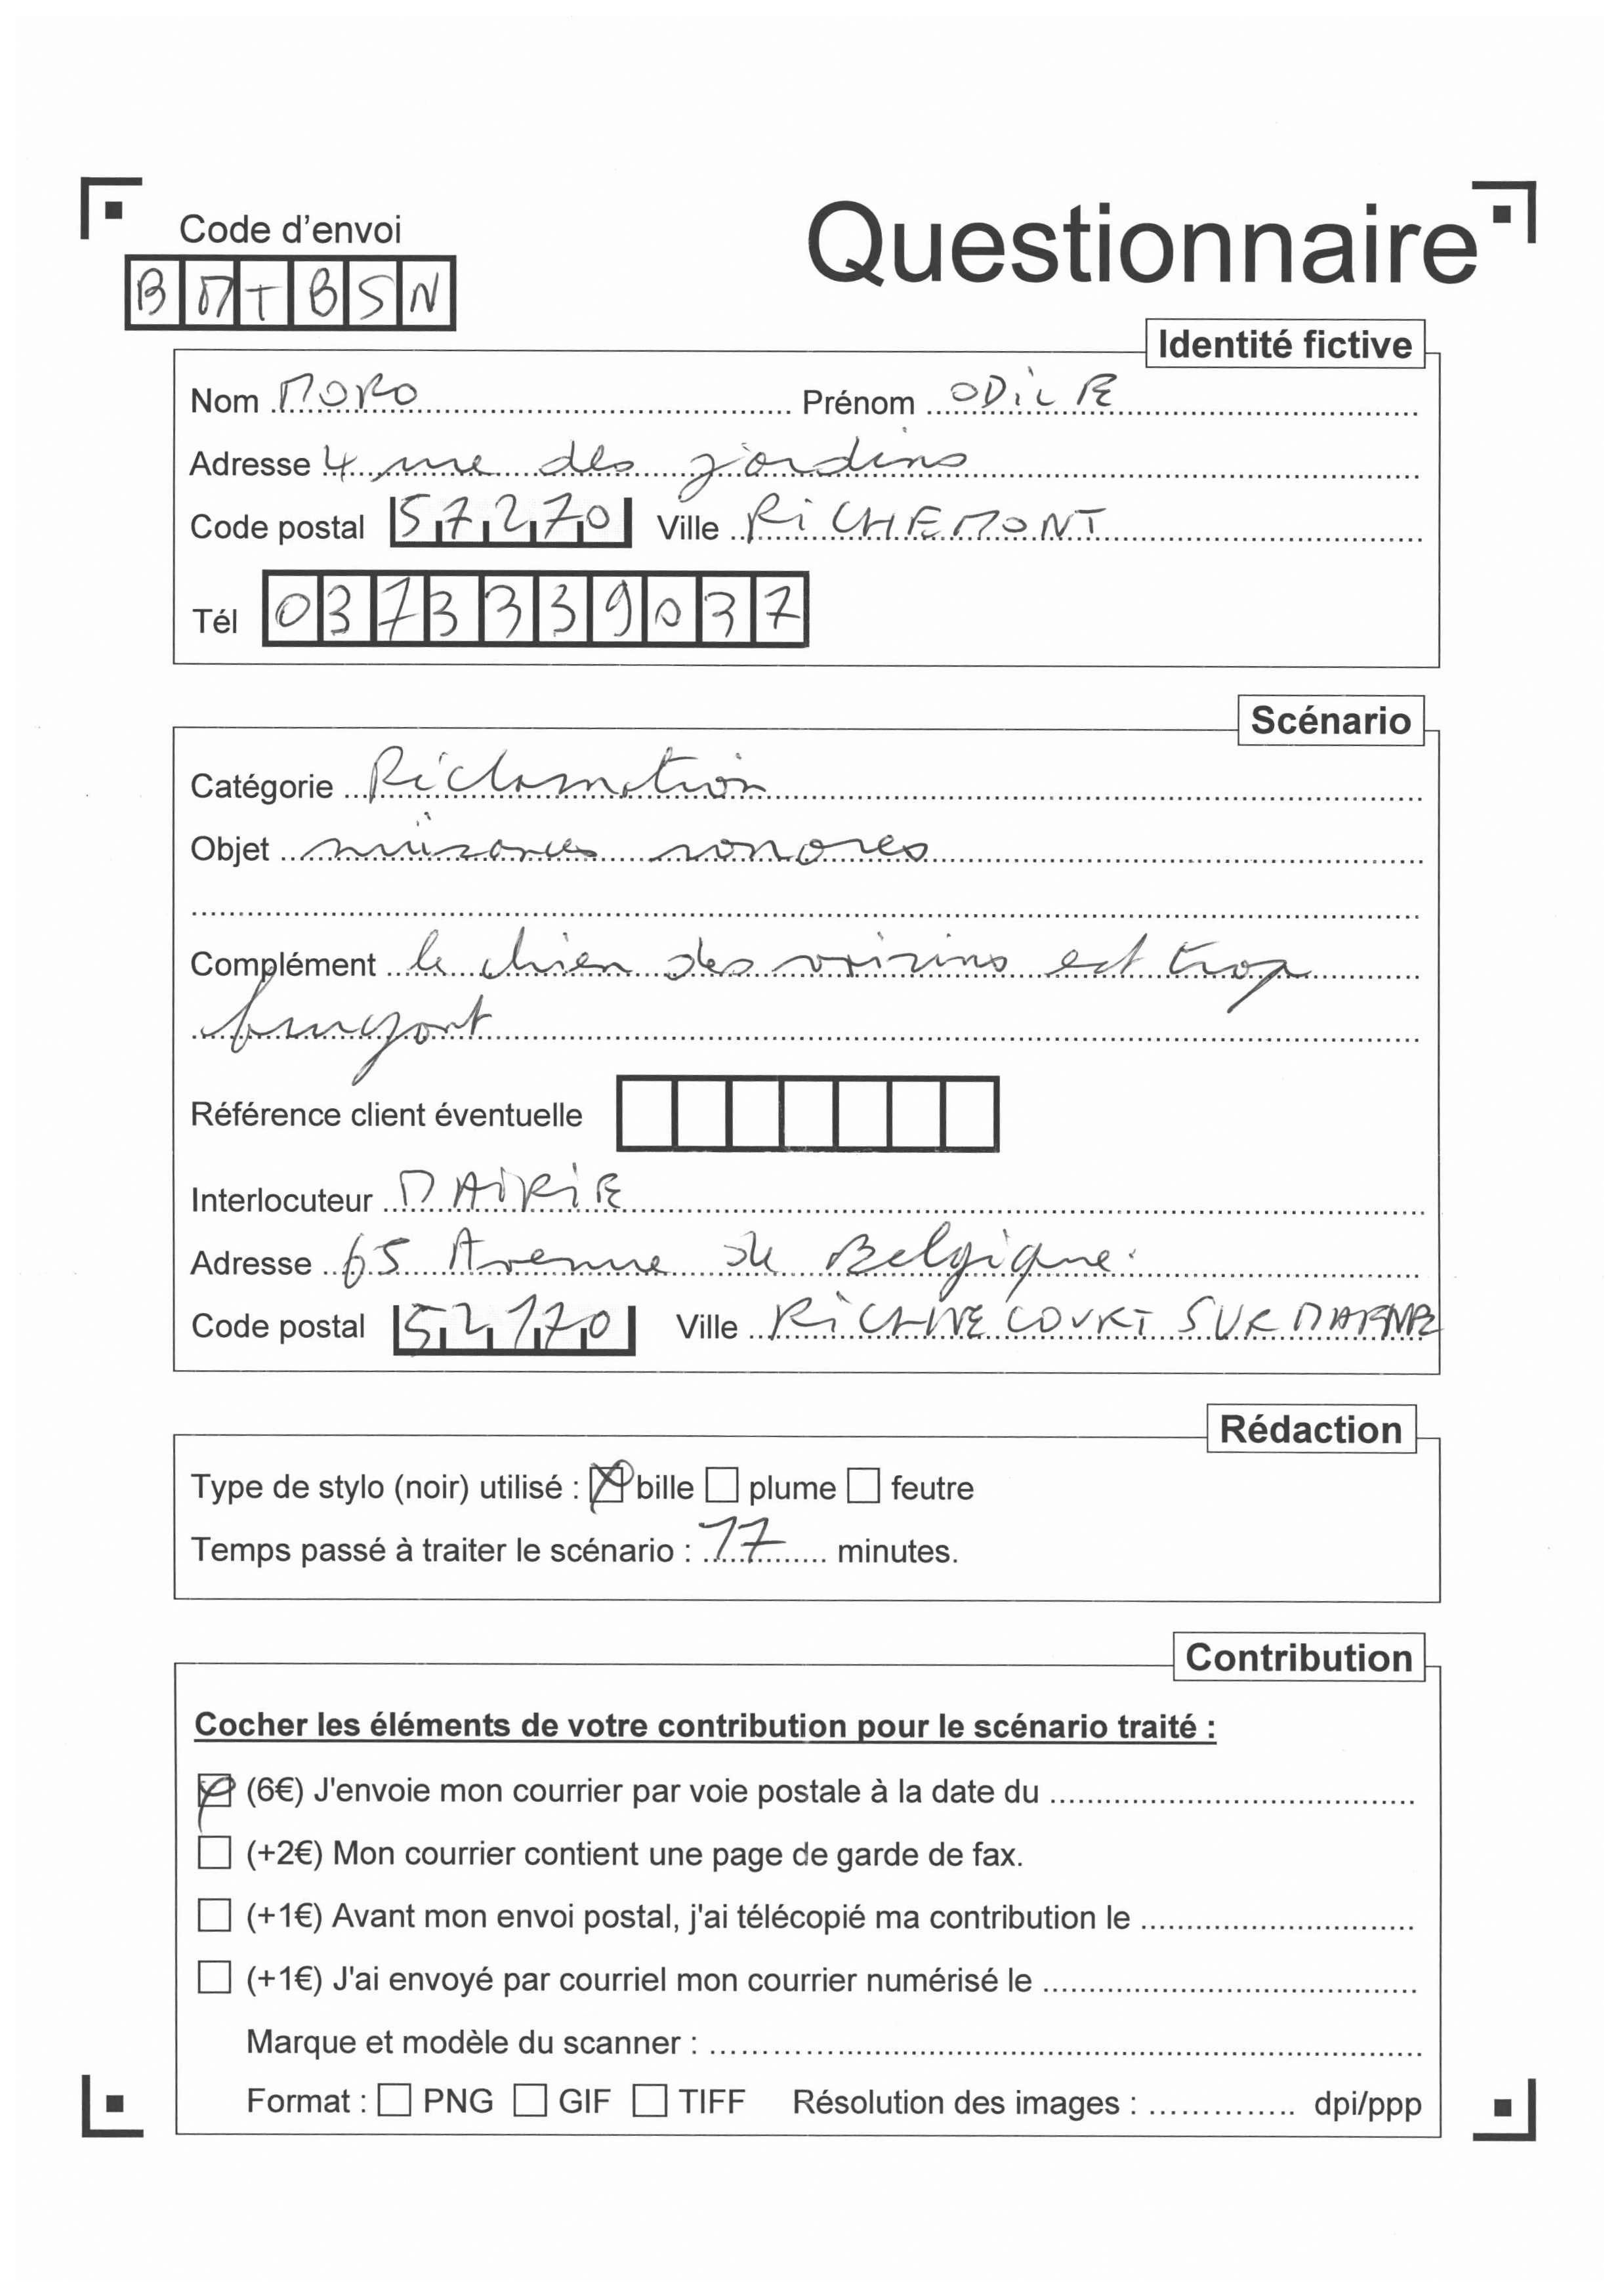 Code d'envoi
Questionnaire
BMTBSN
Identité fictive
Nom MORO Prénom ODiLE
Adresse 4 rue des jardins
Code postal 57270 Ville RiCHEMONT
Tél 0373339037
Scénario
Catégorie Réclamation
Objet nuisances sonores
Complément le chien des voisins est trop
bruyant
Référence client éventuelle
Interlocuteur MAiRiE
Adresse 65 Avenue de Belgique
Code postal 52170 Ville SUR MARNE
Rédaction
Type de stylo (noir) utilisé : bille plume feutre
Temps passé à traiter le scénario : 17 minutes.
Contribution
Cocher les éléments de votre contribution pour le scénario traité :
(6€) J'envoie mon courrier par voie postale à la date du
(+2€) Mon courrier contient une page de garde de fax.
(+1€) Avant mon envoi postal, j'ai télécopié ma contribution le
(+1€) J'ai envoyé par courriel mon courrier numérisé le
Marque et modèle du scanner :
Format : PNG GIF TIFF Résolution des images : dpi/ppp